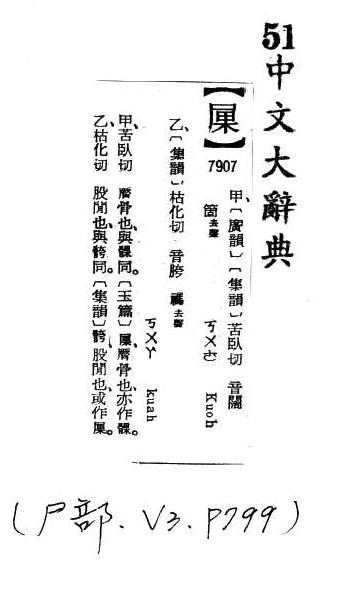 51
中文大辭典
【㞅】
7907
甲、〔廣韻〕〔集韻〕苦臥切 音闊
箇去聲 ㄎㄨㄛ Kuoh
乙、〔集韻〕枯化切 音胯 禡去聲
ㄎㄨㄚ kuah
甲、苦臥切 髂骨也、與髁同。〔玉篇〕㞅、髂骨也、亦作髁。
乙、枯化切 股閒也、與骻同。〔集韻〕骻、股閒也、或作㞅。
(尸部. V3. P799)